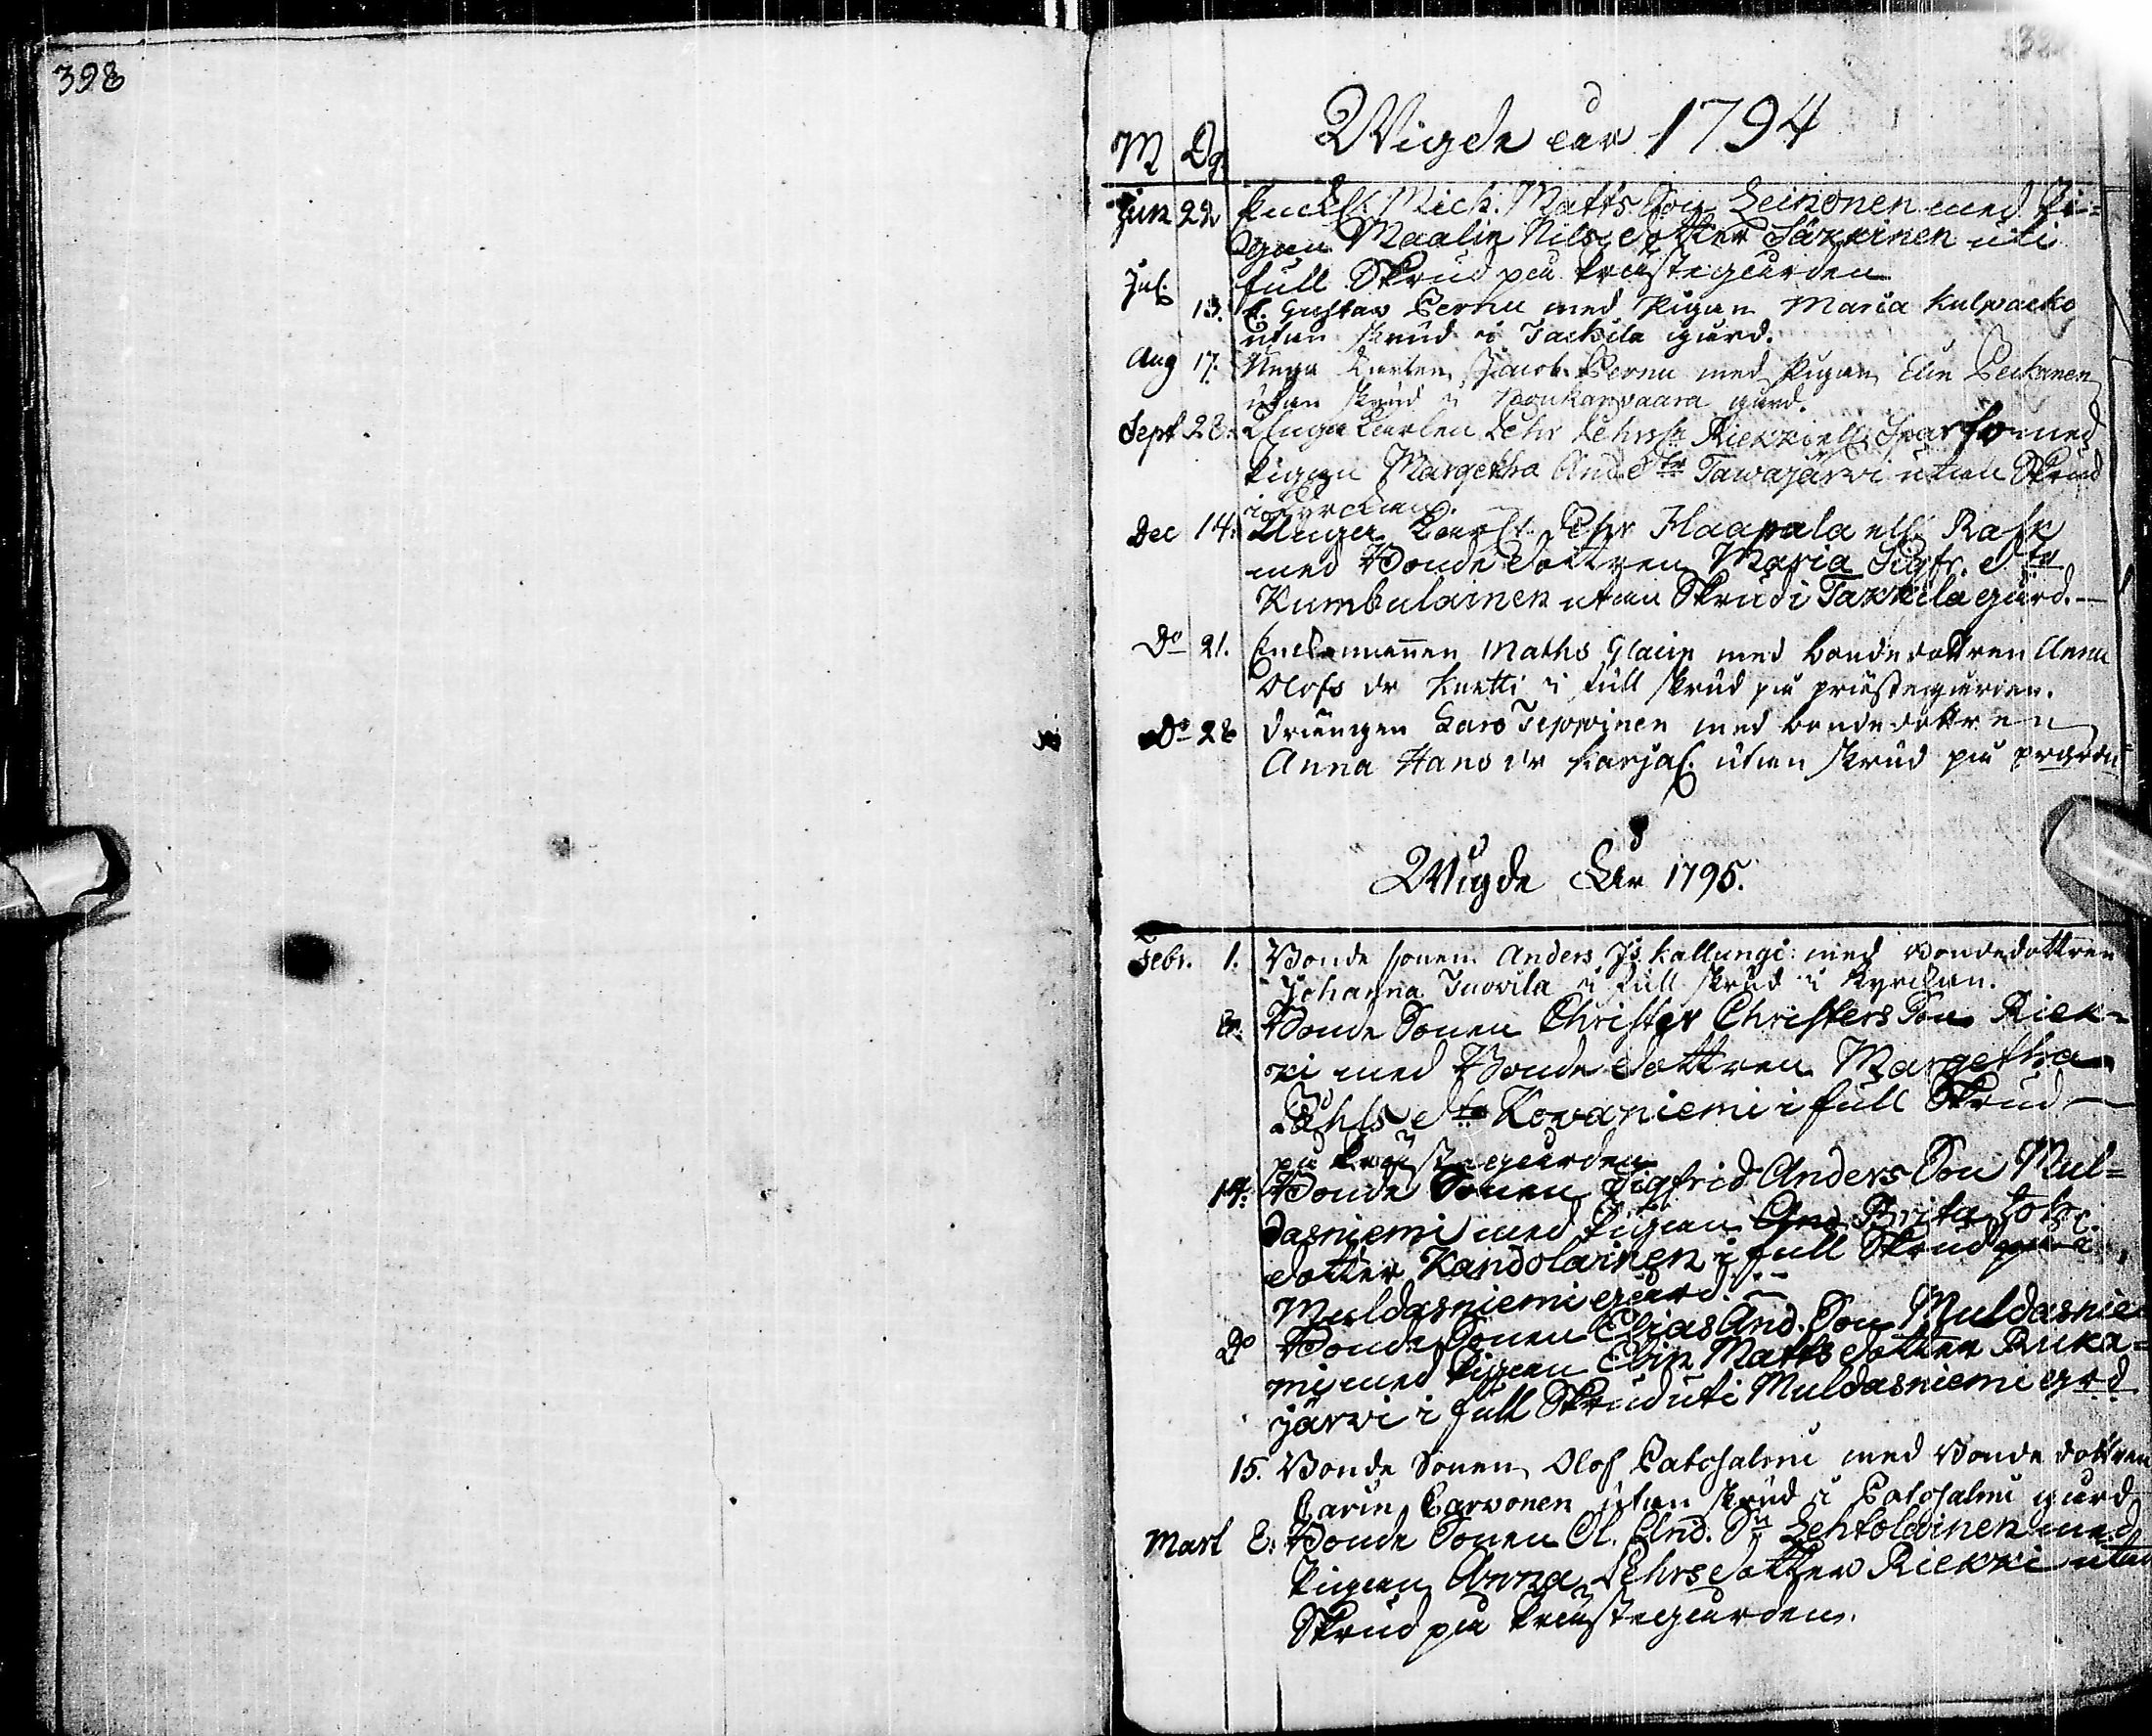 398
Wigde åar 1794
M Dg
Jun 22 Enckl. Mich. Matts Son Leinonen med Pi=
gan Maalin Nils dotter Säkkinen uti
full Skrud på Prästegården
Jul.
13. E. Gustav Pernu med Pigan Maria Kulpacko
utan skrud i Tackila gård.
Aug 17. Unga Karlen Jacob Pernu med Pigan Elin Peckanen
utan skrud i Poukanvaara gård.
Sept 28. Unga Karlen Pehr Pehrss. Riekki ell. Sparf med
Pigan Margetha And. dtr Tawajärvi utan Skrud
i Kyrckan.
Dec 14. Unga Karl. Pehr Haapala ell. Rask
med Bonde dottren Maria Sigfr. dtr
Kumbulainen utan Skrud i Takkila gård.
Do 21. Enckemannen Maths Glader med bondedottren Anna
Olofs dr Kurtti i full skrud på prästegården.
Do 28 Drängen Lars Tepponen med bondedottren
Anna Hans dr Karjal. utan skrud på prgrdn
Wigde Åar 1795.
Febr. 1. Bonde sonen Anders Is. Kallungi med Bondedottren
Johanna Tuovila i full skrud i Kyrckan.
8. Bonde Sonen Christer Christers Son Riek=
ki med Bonde dottren Margetha
Påhls dtr Kovaniemi i full Skrud
på Prästegården
14. Bonde Sonen Sigfrid Anders Son Mul=
dasniemi med Pigan Brita Joh.
dotter Kandolainen i full Skrud
Muldasniemi gård.
Do Bonde Sonen Elias And. Son Muldasnie
mi med Pigan Elin Matts dotter Ruka=
järvi i full Skrud uti Muldasniemi grd
15. Bonde Sonen Olof Patosalmi med Bonde dottren
Carin Carvonen utan skrud i Patosalmi gård
Mart 8. Bonde Sonen Ol. And. Sn Lehtolainen med
Pigan Anna Pehrs dotter Riekki utan
Skrud på Prästegården.